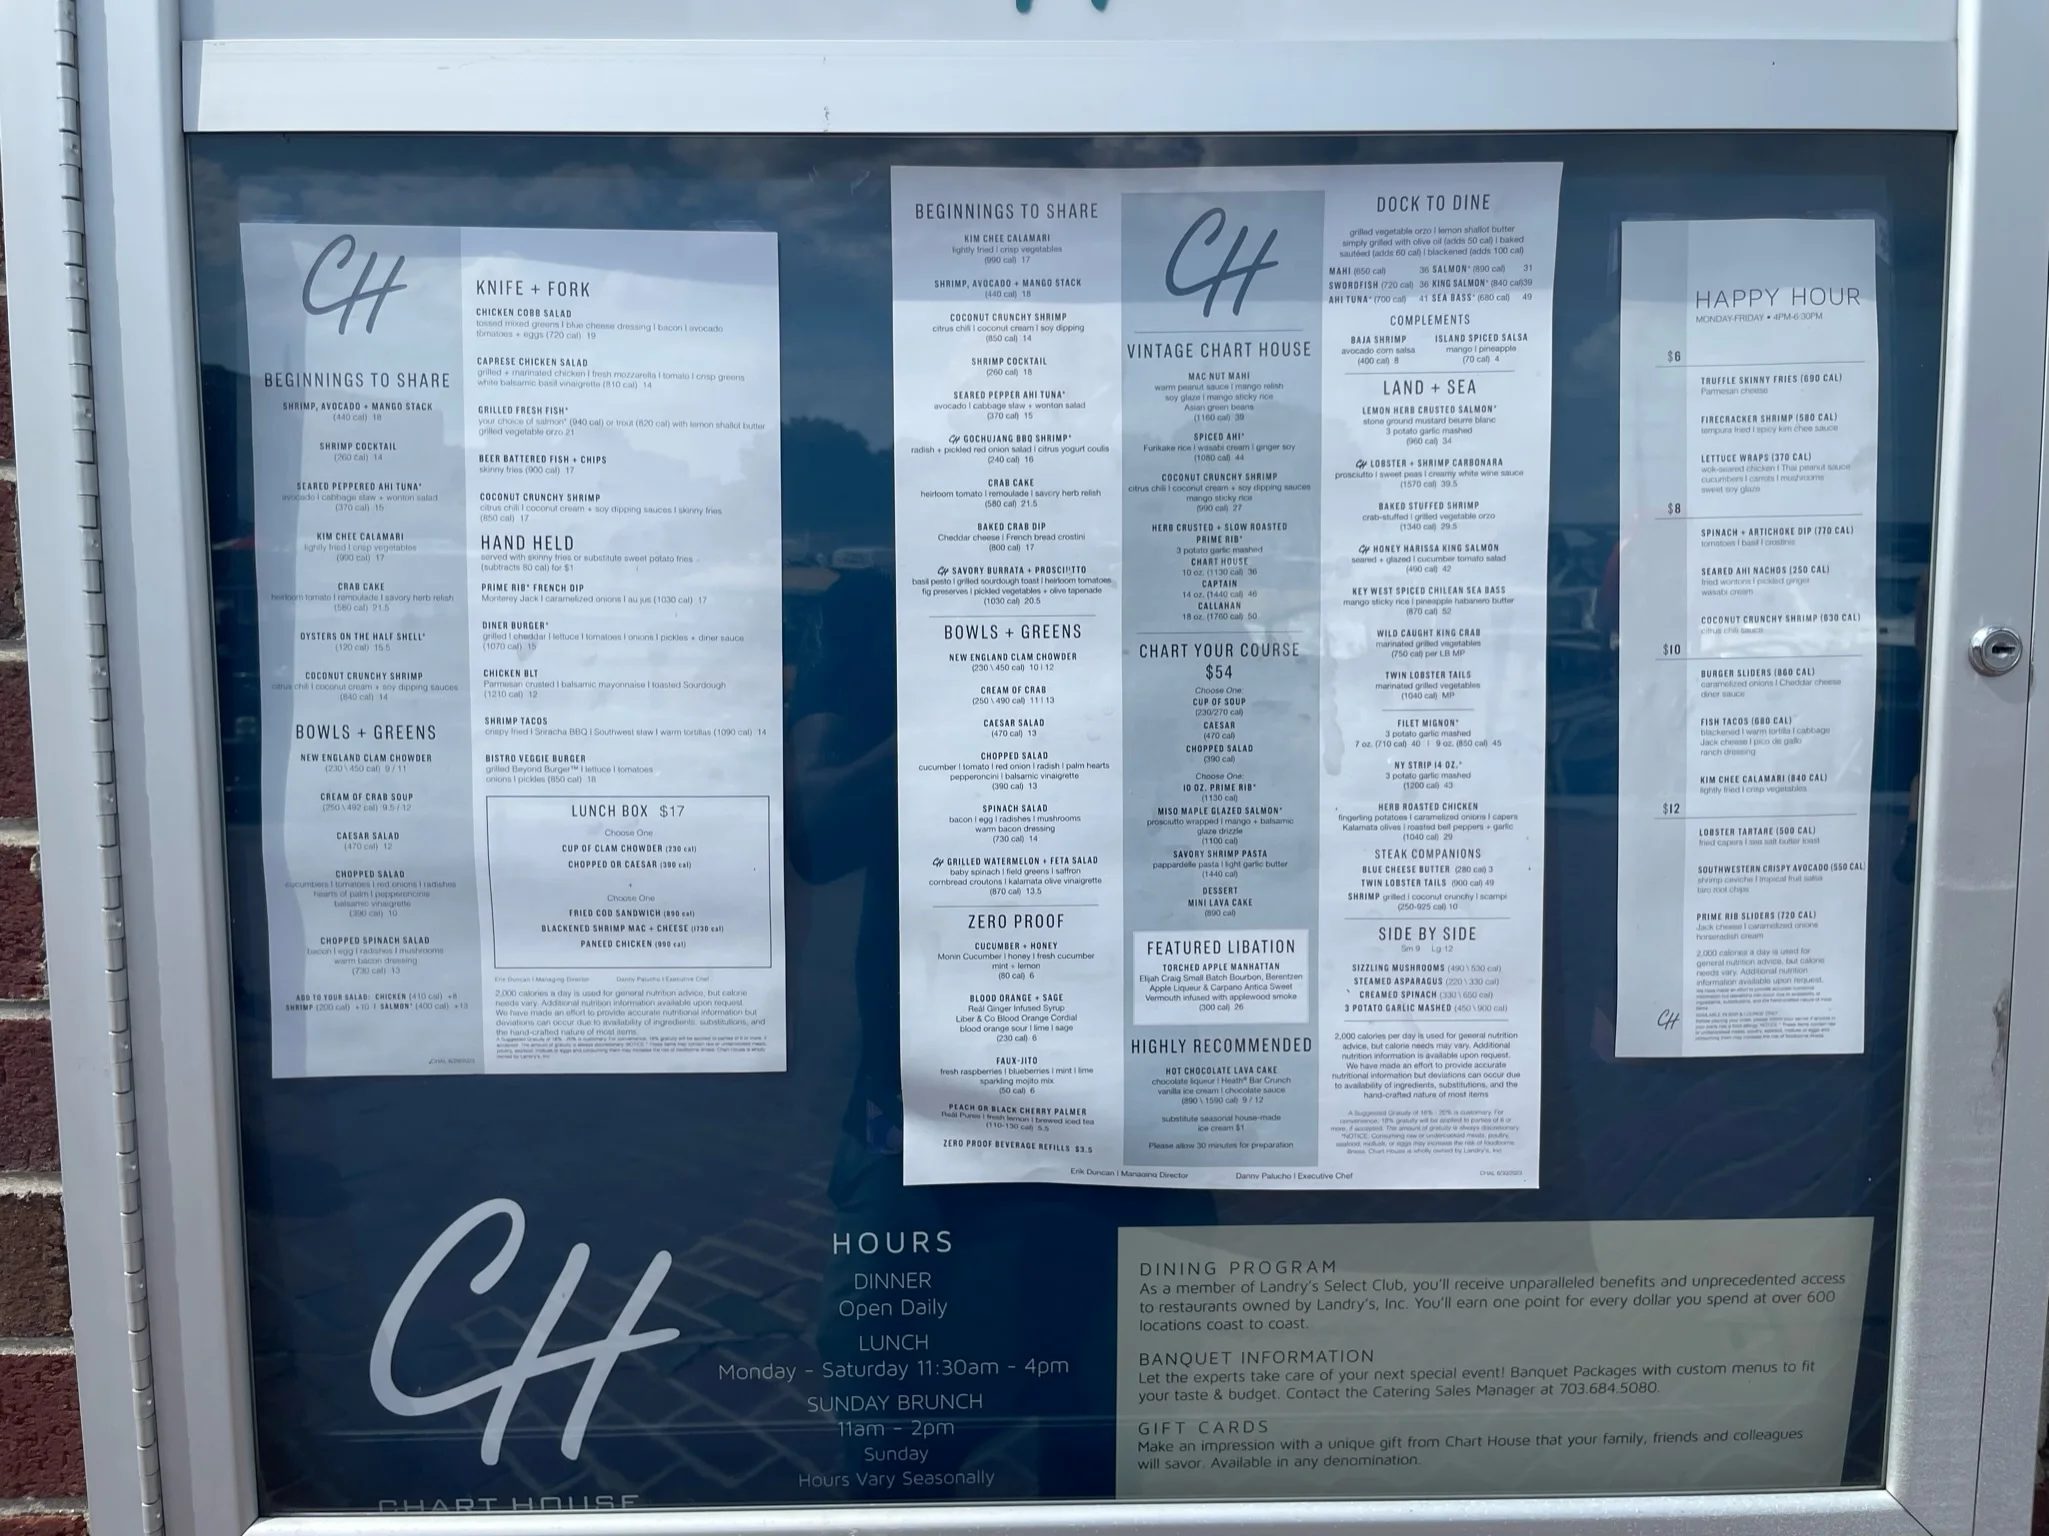 CH
BEGINNINGS TO SHARE
SHRIMP, AVOCADO + MANGO STACK
(440 cal) 18
SHRIMP COCKTAIL
(260 cal) 14
SEARED PEPPERED AHI TUNA*
avocado | cabbage slaw + wonton salad
(370 cal) 15
KIM CHEE CALAMARI
lightly fried | crisp vegetables
(990 cal) 17
CRAB CAKE
heirloom tomato | remoulade | savory herb relish
(580 cal) 21.5
OYSTERS ON THE HALF SHELL*
(120 cal) 15.5
COCONUT CRUNCHY SHRIMP
citrus chili | coconut cream + soy dipping sauces
(840 cal) 14
BOWLS + GREENS
NEW ENGLAND CLAM CHOWDER
(230 \ 450 cal) 9 / 11
CREAM OF CRAB SOUP
(250 \ 492 cal) 9.5 / 12
CAESAR SALAD
(470 cal) 12
CHOPPED SALAD
cucumbers | tomatoes | red onions | radishes
hearts of palm | pepperoncinis
balsamic vinaigrette
(390 cal) 10
CHOPPED SPINACH SALAD
bacon | egg | radishes | mushrooms
warm bacon dressing
(730 cal) 13
ADD TO YOUR SALAD: CHICKEN (410 cal) +8
SHRIMP (200 cal) +10 | SALMON* (400 cal) +13
KNIFE + FORK
CHICKEN COBB SALAD
tossed mixed greens | blue cheese dressing | bacon | avocado
tomatoes + eggs (720 cal) 19
CAPRESE CHICKEN SALAD
grilled + marinated chicken | fresh mozzarella | tomato | crisp greens
white balsamic basil vinaigrette (810 cal) 14
GRILLED FRESH FISH*
your choice of salmon* (940 cal) or trout (820 cal) with lemon shallot butter
grilled vegetable orzo 21
BEER BATTERED FISH + CHIPS
skinny fries (900 cal) 17
COCONUT CRUNCHY SHRIMP
citrus chili | coconut cream + soy dipping sauces | skinny fries
(850 cal) 17
HAND HELD
served with skinny fries or substitute sweet potato fries
(subtracts 80 cal) for $1
PRIME RIB* FRENCH DIP
Monterey Jack | caramelized onions | au jus (1030 cal) 17
DINER BURGER*
grilled | cheddar | lettuce | tomatoes | onions | pickles + diner sauce
(1070 cal) 15
CHICKEN BLT
Parmesan crusted | balsamic mayonnaise | toasted Sourdough
(1210 cal) 12
SHRIMP TACOS
crispy fried | Sriracha BBQ | Southwest slaw | warm tortillas (1090 cal) 14
BISTRO VEGGIE BURGER
grilled Beyond Burger™ | lettuce | tomatoes
onions | pickles (850 cal) 18
LUNCH BOX $17
Choose One
CUP OF CLAM CHOWDER (230 cal)
CHOPPED OR CAESAR (390 cal)
+
Choose One
FRIED COD SANDWICH (890 cal)
BLACKENED SHRIMP MAC + CHEESE (1730 cal)
PANEED CHICKEN (990 cal)
Erik Duncan | Managing Director Danny Palucho | Executive Chef
2,000 calories a day is used for general nutrition advice, but calorie
needs vary. Additional nutrition information available upon request.
We have made an effort to provide accurate nutritional information but
deviations can occur due to availability of ingredients, substitutions, and
the hand-crafted nature of most items.
BEGINNINGS TO SHARE
KIM CHEE CALAMARI
lightly fried | crisp vegetables
(990 cal) 17
SHRIMP, AVOCADO + MANGO STACK
(440 cal) 18
COCONUT CRUNCHY SHRIMP
citrus chili | coconut cream | soy dipping
(850 cal) 14
SHRIMP COCKTAIL
(260 cal) 18
SEARED PEPPER AHI TUNA*
avocado | cabbage slaw + wonton salad
(370 cal) 15
CH GOCHUJANG BBQ SHRIMP*
radish + pickled red onion salad | citrus yogurt coulis
(240 cal) 16
CRAB CAKE
heirloom tomato | remoulade | savory herb relish
(580 cal) 21.5
BAKED CRAB DIP
Cheddar cheese | French bread crostini
(800 cal) 17
CH SAVORY BURRATA + PROSCIUTTO
basil pesto | grilled sourdough toast | heirloom tomatoes
fig preserves | pickled vegetables + olive tapenade
(1030 cal) 20.5
BOWLS + GREENS
NEW ENGLAND CLAM CHOWDER
(230 \ 450 cal) 10 | 12
CREAM OF CRAB
(250 \ 490 cal) 11 | 13
CAESAR SALAD
(470 cal) 13
CHOPPED SALAD
cucumber | tomato | red onion | radish | palm hearts
pepperoncini | balsamic vinaigrette
(390 cal) 13
SPINACH SALAD
bacon | egg | radishes | mushrooms
warm bacon dressing
(730 cal) 14
CH GRILLED WATERMELON + FETA SALAD
baby spinach | field greens | saffron
cornbread croutons | kalamata olive vinaigrette
(870 cal) 13.5
ZERO PROOF
CUCUMBER + HONEY
Monin Cucumber | honey | fresh cucumber
mint + lemon
(80 cal) 6
BLOOD ORANGE + SAGE
Reàl Ginger Infused Syrup
Liber & Co Blood Orange Cordial
blood orange sour | lime | sage
(230 cal) 6
FAUX-JITO
fresh raspberries | blueberries | mint | lime
sparkling mojito mix
(50 cal) 6
PEACH OR BLACK CHERRY PALMER
Reàl Purees | fresh lemon | brewed iced tea
(110-130 cal) 5.5
ZERO PROOF BEVERAGE REFILLS $3.5
CH
VINTAGE CHART HOUSE
MAC NUT MAHI
warm peanut sauce | mango relish
soy glaze | mango sticky rice
Asian green beans
(1160 cal) 39
SPICED AHI*
Furikake rice | wasabi cream | ginger soy
(1080 cal) 44
COCONUT CRUNCHY SHRIMP
citrus chili | coconut cream + soy dipping sauces
mango sticky rice
(990 cal) 27
HERB CRUSTED + SLOW ROASTED
PRIME RIB*
3 potato garlic mashed
CHART HOUSE
10 oz. (1130 cal) 36
CAPTAIN
14 oz. (1440 cal) 46
CALLAHAN
18 oz. (1760 cal) 50
CHART YOUR COURSE
$54
Choose One:
CUP OF SOUP
(230/270 cal)
CAESAR
(470 cal)
CHOPPED SALAD
(390 cal)
Choose One:
10 OZ. PRIME RIB*
(1130 cal)
MISO MAPLE GLAZED SALMON*
prosciutto wrapped | mango + balsamic
glaze drizzle
(1100 cal)
SAVORY SHRIMP PASTA
pappardelle pasta | light garlic butter
(1440 cal)
DESSERT
MINI LAVA CAKE
(890 cal)
FEATURED LIBATION
TORCHED APPLE MANHATTAN
Elijah Craig Small Batch Bourbon, Berentzen
Apple Liqueur & Carpano Antica Sweet
Vermouth infused with applewood smoke
(300 cal) 26
HIGHLY RECOMMENDED
HOT CHOCOLATE LAVA CAKE
chocolate liqueur | Heath® Bar Crunch
vanilla ice cream | chocolate sauce
(890 \ 1590 cal) 9 / 12
substitute seasonal house-made
ice cream $1
Please allow 30 minutes for preparation
DOCK TO DINE
grilled vegetable orzo | lemon shallot butter
simply grilled with olive oil (adds 50 cal) | baked
sautéed (adds 60 cal) | blackened (adds 100 cal)
MAHI (650 cal) 36 SALMON* (890 cal) 31
SWORDFISH (720 cal) 36 KING SALMON* (840 cal)39
AHI TUNA* (700 cal) 41 SEA BASS* (680 cal) 49
COMPLEMENTS
BAJA SHRIMP ISLAND SPICED SALSA
avocado corn salsa mango | pineapple
(400 cal) 8 (70 cal) 4
LAND + SEA
LEMON HERB CRUSTED SALMON*
stone ground mustard beurre blanc
3 potato garlic mashed
(960 cal) 34
CH LOBSTER + SHRIMP CARBONARA
prosciutto | sweet peas | creamy white wine sauce
(1570 cal) 39.5
BAKED STUFFED SHRIMP
crab-stuffed | grilled vegetable orzo
(1340 cal) 29.5
CH HONEY HARISSA KING SALMON
seared + glazed | cucumber tomato salad
(490 cal) 42
KEY WEST SPICED CHILEAN SEA BASS
mango sticky rice | pineapple habanero butter
(870 cal) 52
WILD CAUGHT KING CRAB
marinated grilled vegetables
(750 cal) per LB MP
TWIN LOBSTER TAILS
marinated grilled vegetables
(1040 cal) MP
FILET MIGNON*
3 potato garlic mashed
7 oz. (710 cal) 40 | 9 oz. (850 cal) 45
NY STRIP 14 OZ.*
3 potato garlic mashed
(1200 cal) 43
HERB ROASTED CHICKEN
fingerling potatoes | caramelized onions | capers
Kalamata olives | roasted bell peppers + garlic
(1040 cal) 29
STEAK COMPANIONS
BLUE CHEESE BUTTER (280 cal) 3
TWIN LOBSTER TAILS (900 cal) 49
SHRIMP grilled | coconut crunchy | scampi
(250-925 cal) 10
SIDE BY SIDE
Sm 9 Lg 12
SIZZLING MUSHROOMS (490 \ 530 cal)
STEAMED ASPARAGUS (220 \ 330 cal)
CREAMED SPINACH (330 \ 650 cal)
3 POTATO GARLIC MASHED (450 \ 900 cal)
2,000 calories per day is used for general nutrition
advice, but calorie needs may vary. Additional
nutrition information is available upon request.
We have made an effort to provide accurate
nutritional information but deviations can occur due
to availability of ingredients, substitutions, and the
hand-crafted nature of most items
A Suggested Gratuity of 18% - 20% is customary. For
convenience, 18% gratuity will be applied to parties of 8 or
more, if accepted. The amount of gratuity is always discretionary.
*NOTICE: Consuming raw or undercooked meats, poultry,
seafood, mollusk, or eggs may increase the risk of foodborne
illness. Chart House is wholly owned by Landry's, Inc.
Erik Duncan | Managing Director Danny Palucho | Executive Chef
HAPPY HOUR
MONDAY-FRIDAY • 4PM-6:30PM
$6
TRUFFLE SKINNY FRIES (690 CAL)
Parmesan cheese
FIRECRACKER SHRIMP (580 CAL)
tempura fried | spicy kim chee sauce
LETTUCE WRAPS (370 CAL)
wok-seared chicken | Thai peanut sauce
cucumbers | carrots | mushrooms
sweet soy glaze
$8
SPINACH + ARTICHOKE DIP (770 CAL)
tomatoes | basil | crostinis
SEARED AHI NACHOS (250 CAL)
fried wontons | pickled ginger
wasabi cream
COCONUT CRUNCHY SHRIMP (630 CAL)
citrus chili sauce
$10
BURGER SLIDERS (860 CAL)
caramelized onions | Cheddar cheese
diner sauce
FISH TACOS (680 CAL)
blackened | warm tortilla | cabbage
Jack cheese | pico de gallo
ranch dressing
KIM CHEE CALAMARI (840 CAL)
lightly fried | crisp vegetables
$12
LOBSTER TARTARE (500 CAL)
fried capers | sea salt butter toast
SOUTHWESTERN CRISPY AVOCADO (550 CAL
shrimp ceviche | tropical fruit salsa
taro root chips
PRIME RIB SLIDERS (720 CAL)
Jack cheese | caramelized onions
horseradish cream
2,000 calories a day is used for
general nutrition advice, but calorie
needs vary. Additional nutrition
information available upon request.
CH
CH
CHART HOUSE
HOURS
DINNER
Open Daily
LUNCH
Monday - Saturday 11:30am - 4pm
SUNDAY BRUNCH
11am - 2pm
Sunday
Hours Vary Seasonally
DINING PROGRAM
As a member of Landry's Select Club, you'll receive unparalleled benefits and unprecedented access
to restaurants owned by Landry's, Inc. You'll earn one point for every dollar you spend at over 600
locations coast to coast.
BANQUET INFORMATION
Let the experts take care of your next special event! Banquet Packages with custom menus to fit
your taste & budget. Contact the Catering Sales Manager at 703.684.5080.
GIFT CARDS
Make an impression with a unique gift from Chart House that your family, friends and colleagues
will savor. Available in any denomination.